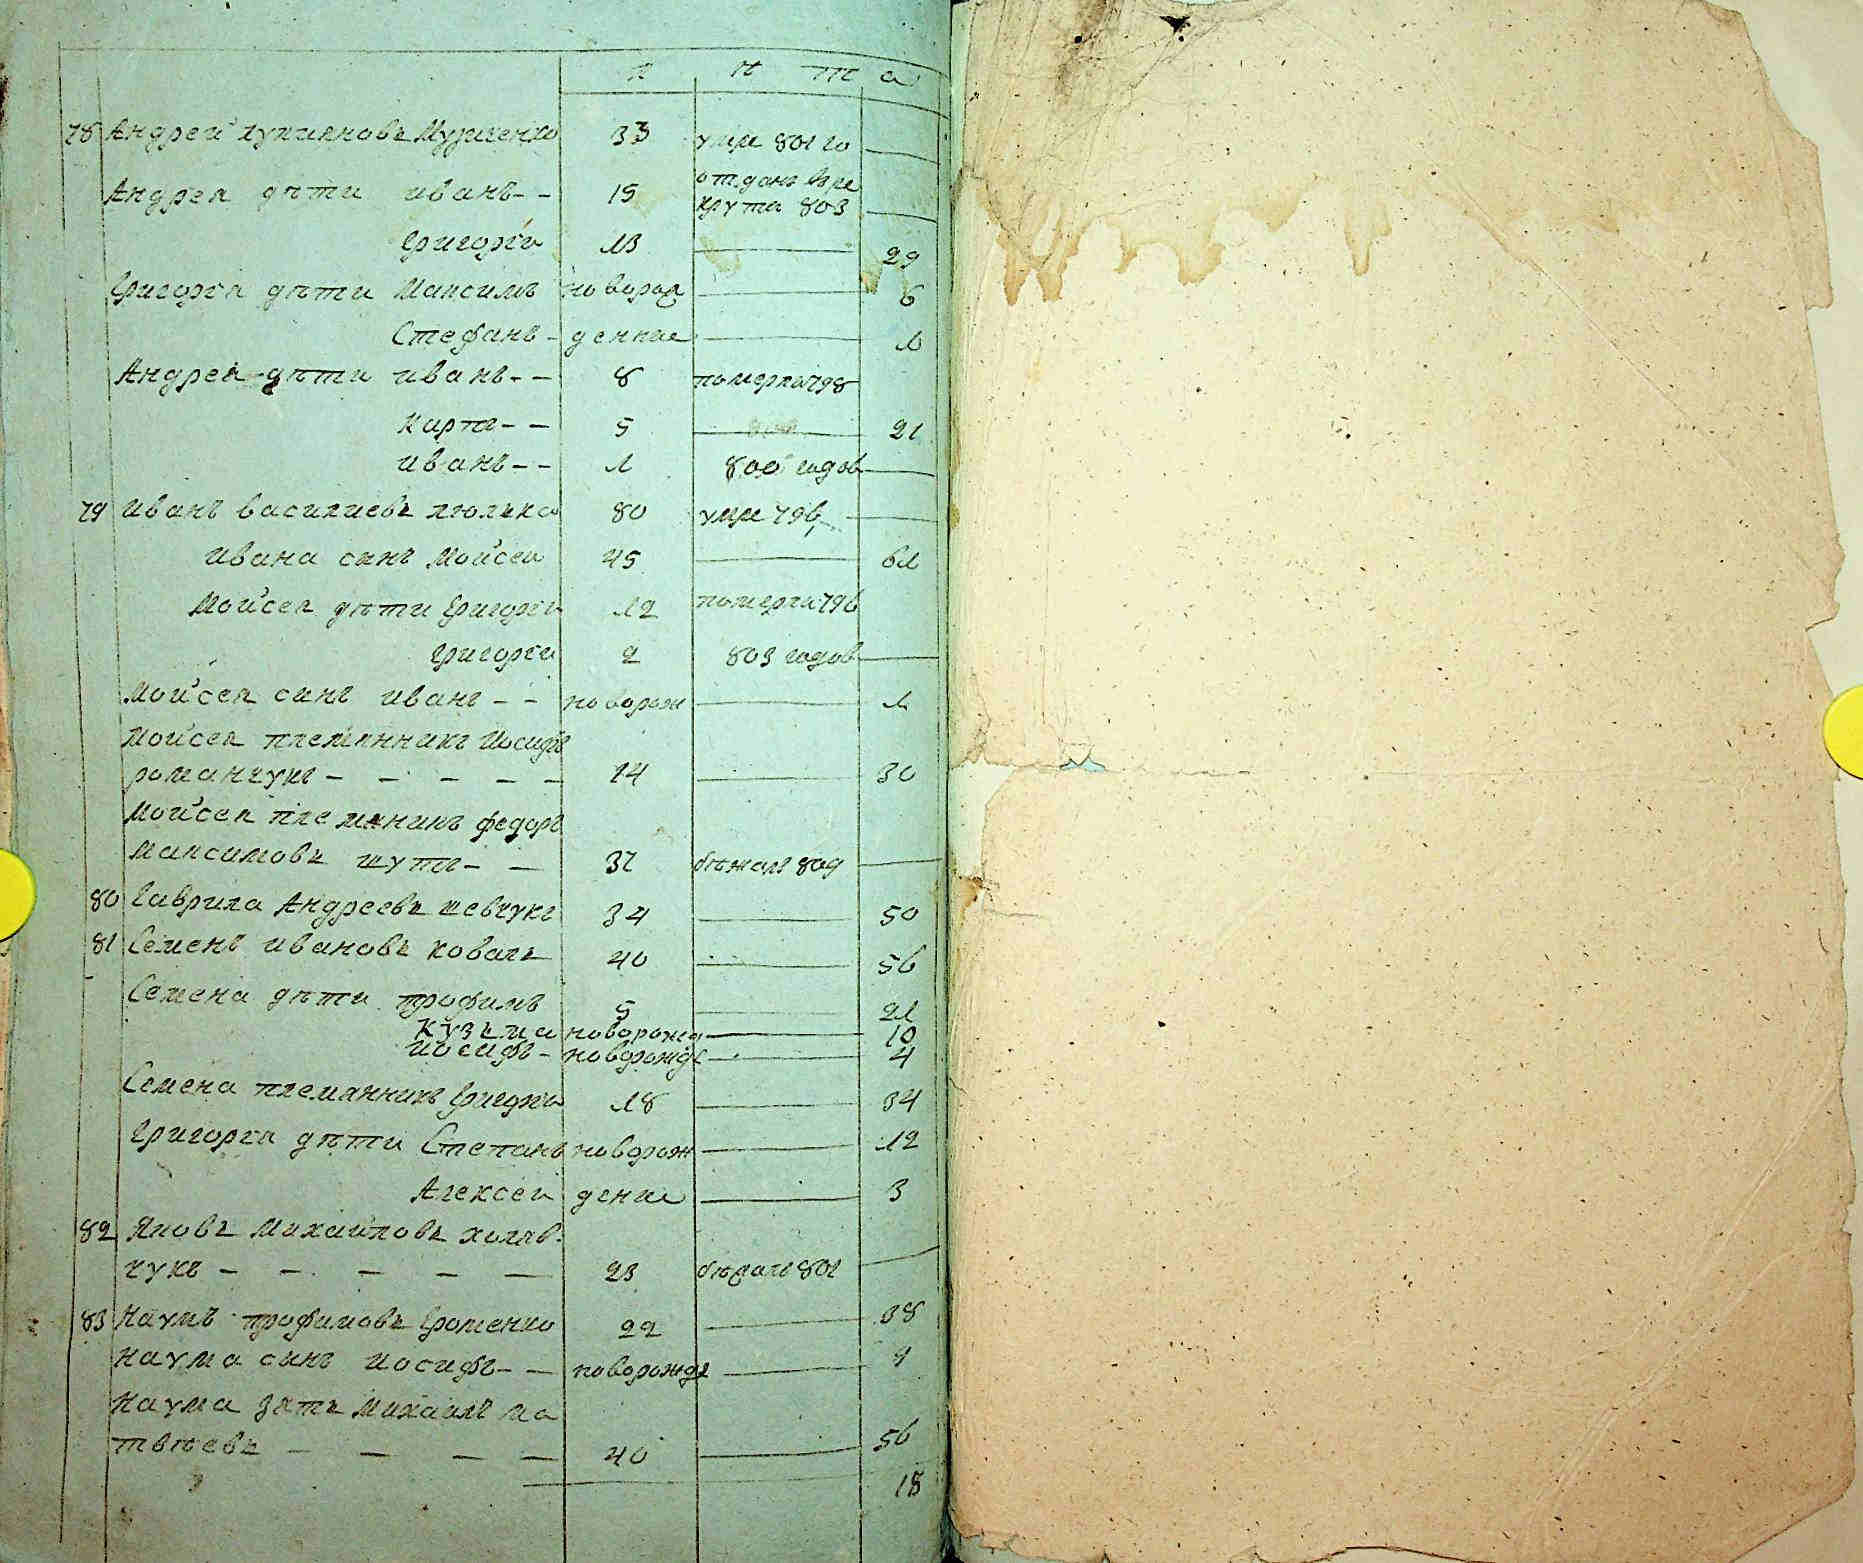 л ѣ т а
78 Андрей лукияновъ Мудренко 33 умре 801 го
Андрея дѣти иванъ - - 15 отданъ въ ре
крути 803
Григорїй 13 29
Григорїя дѣти Максимъ новорож 6
Стефанъ - денние 1
Андрея дѣти иванъ - - 8 померли 798
Карпъ - - 5 21
иванъ - - 1 800 годов
79 иванъ василиевъ люлька 80 умре 796
ивана синъ Мойсей 45 61
Мойсея дѣти Григорїй 12 померли 796
Григорїй 2 803 годов
Мойсея синъ иванъ - - новорож 1
Мойсея племянникъ Иосифъ
романчукъ - - - - - 14 30
Мойсея племянникъ федоръ
Максимовъ шутъ - - 37 бѣжалъ 809
80 Гаврила Андреевъ шевчукъ 34 50
81 Семенъ ивановъ коваль 40 56
Семена дѣти трофимъ 5 21
Кузьма новорожд 10
иосифъ - новорожде 4
Семена племянникъ Григорїй 18 34
Григорїя дѣти Степанъ новорож 12
Алексей дение 3
82 Яковъ Михайловъ холяв-
чукъ - - - - - 23 бѣжалъ 801
83 Наумъ трофимовъ Ероменко 22 38
Наума синъ иосифъ - - новорожде 4
Наума зять Михаилъ Ма
твѣевъ - - - - 40 56
18